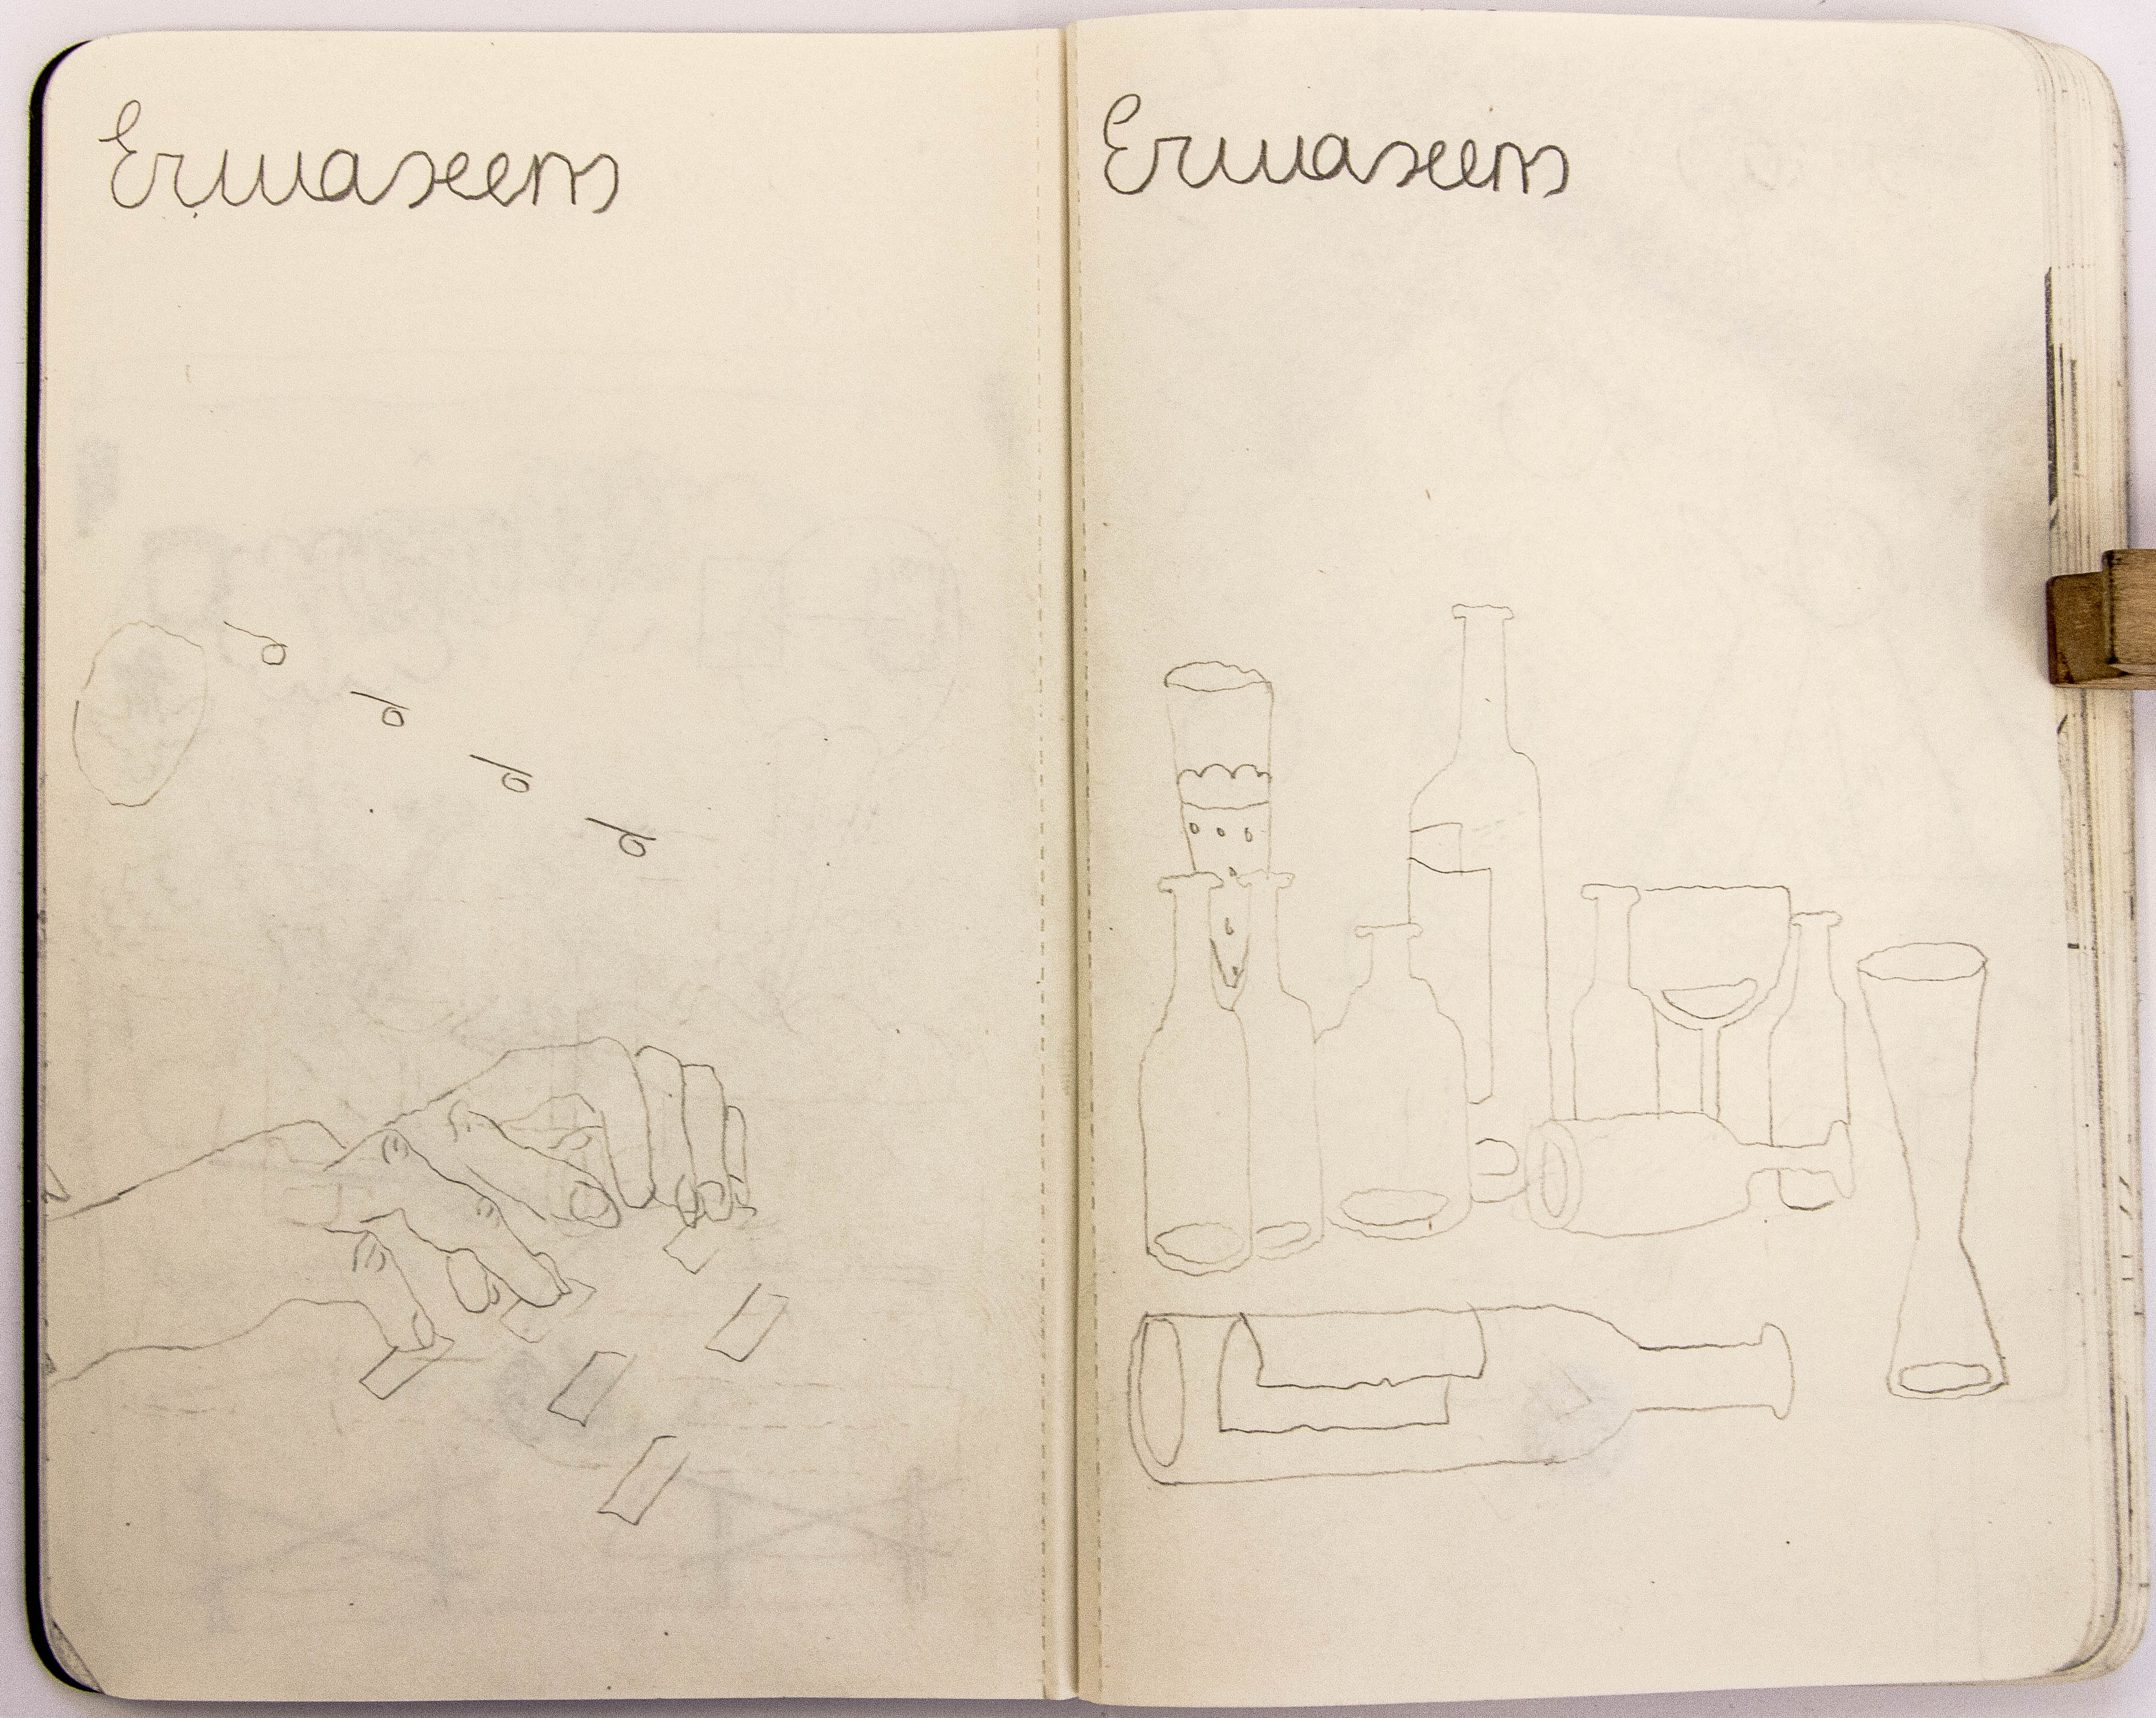 Erwaseens
Erwaseens